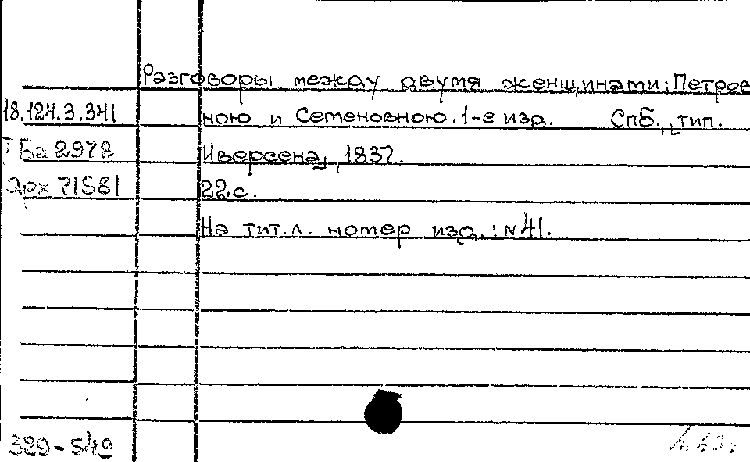 Разговоры между двумя женщинами: Петров
18.124.3.341 ною и Семеновною. 1-е изд. Спб., тип.
Ба 2978 Иверсена, 1837.
Арх 71581 22 с.
На тит. л. номер изд.: N41.
329-549